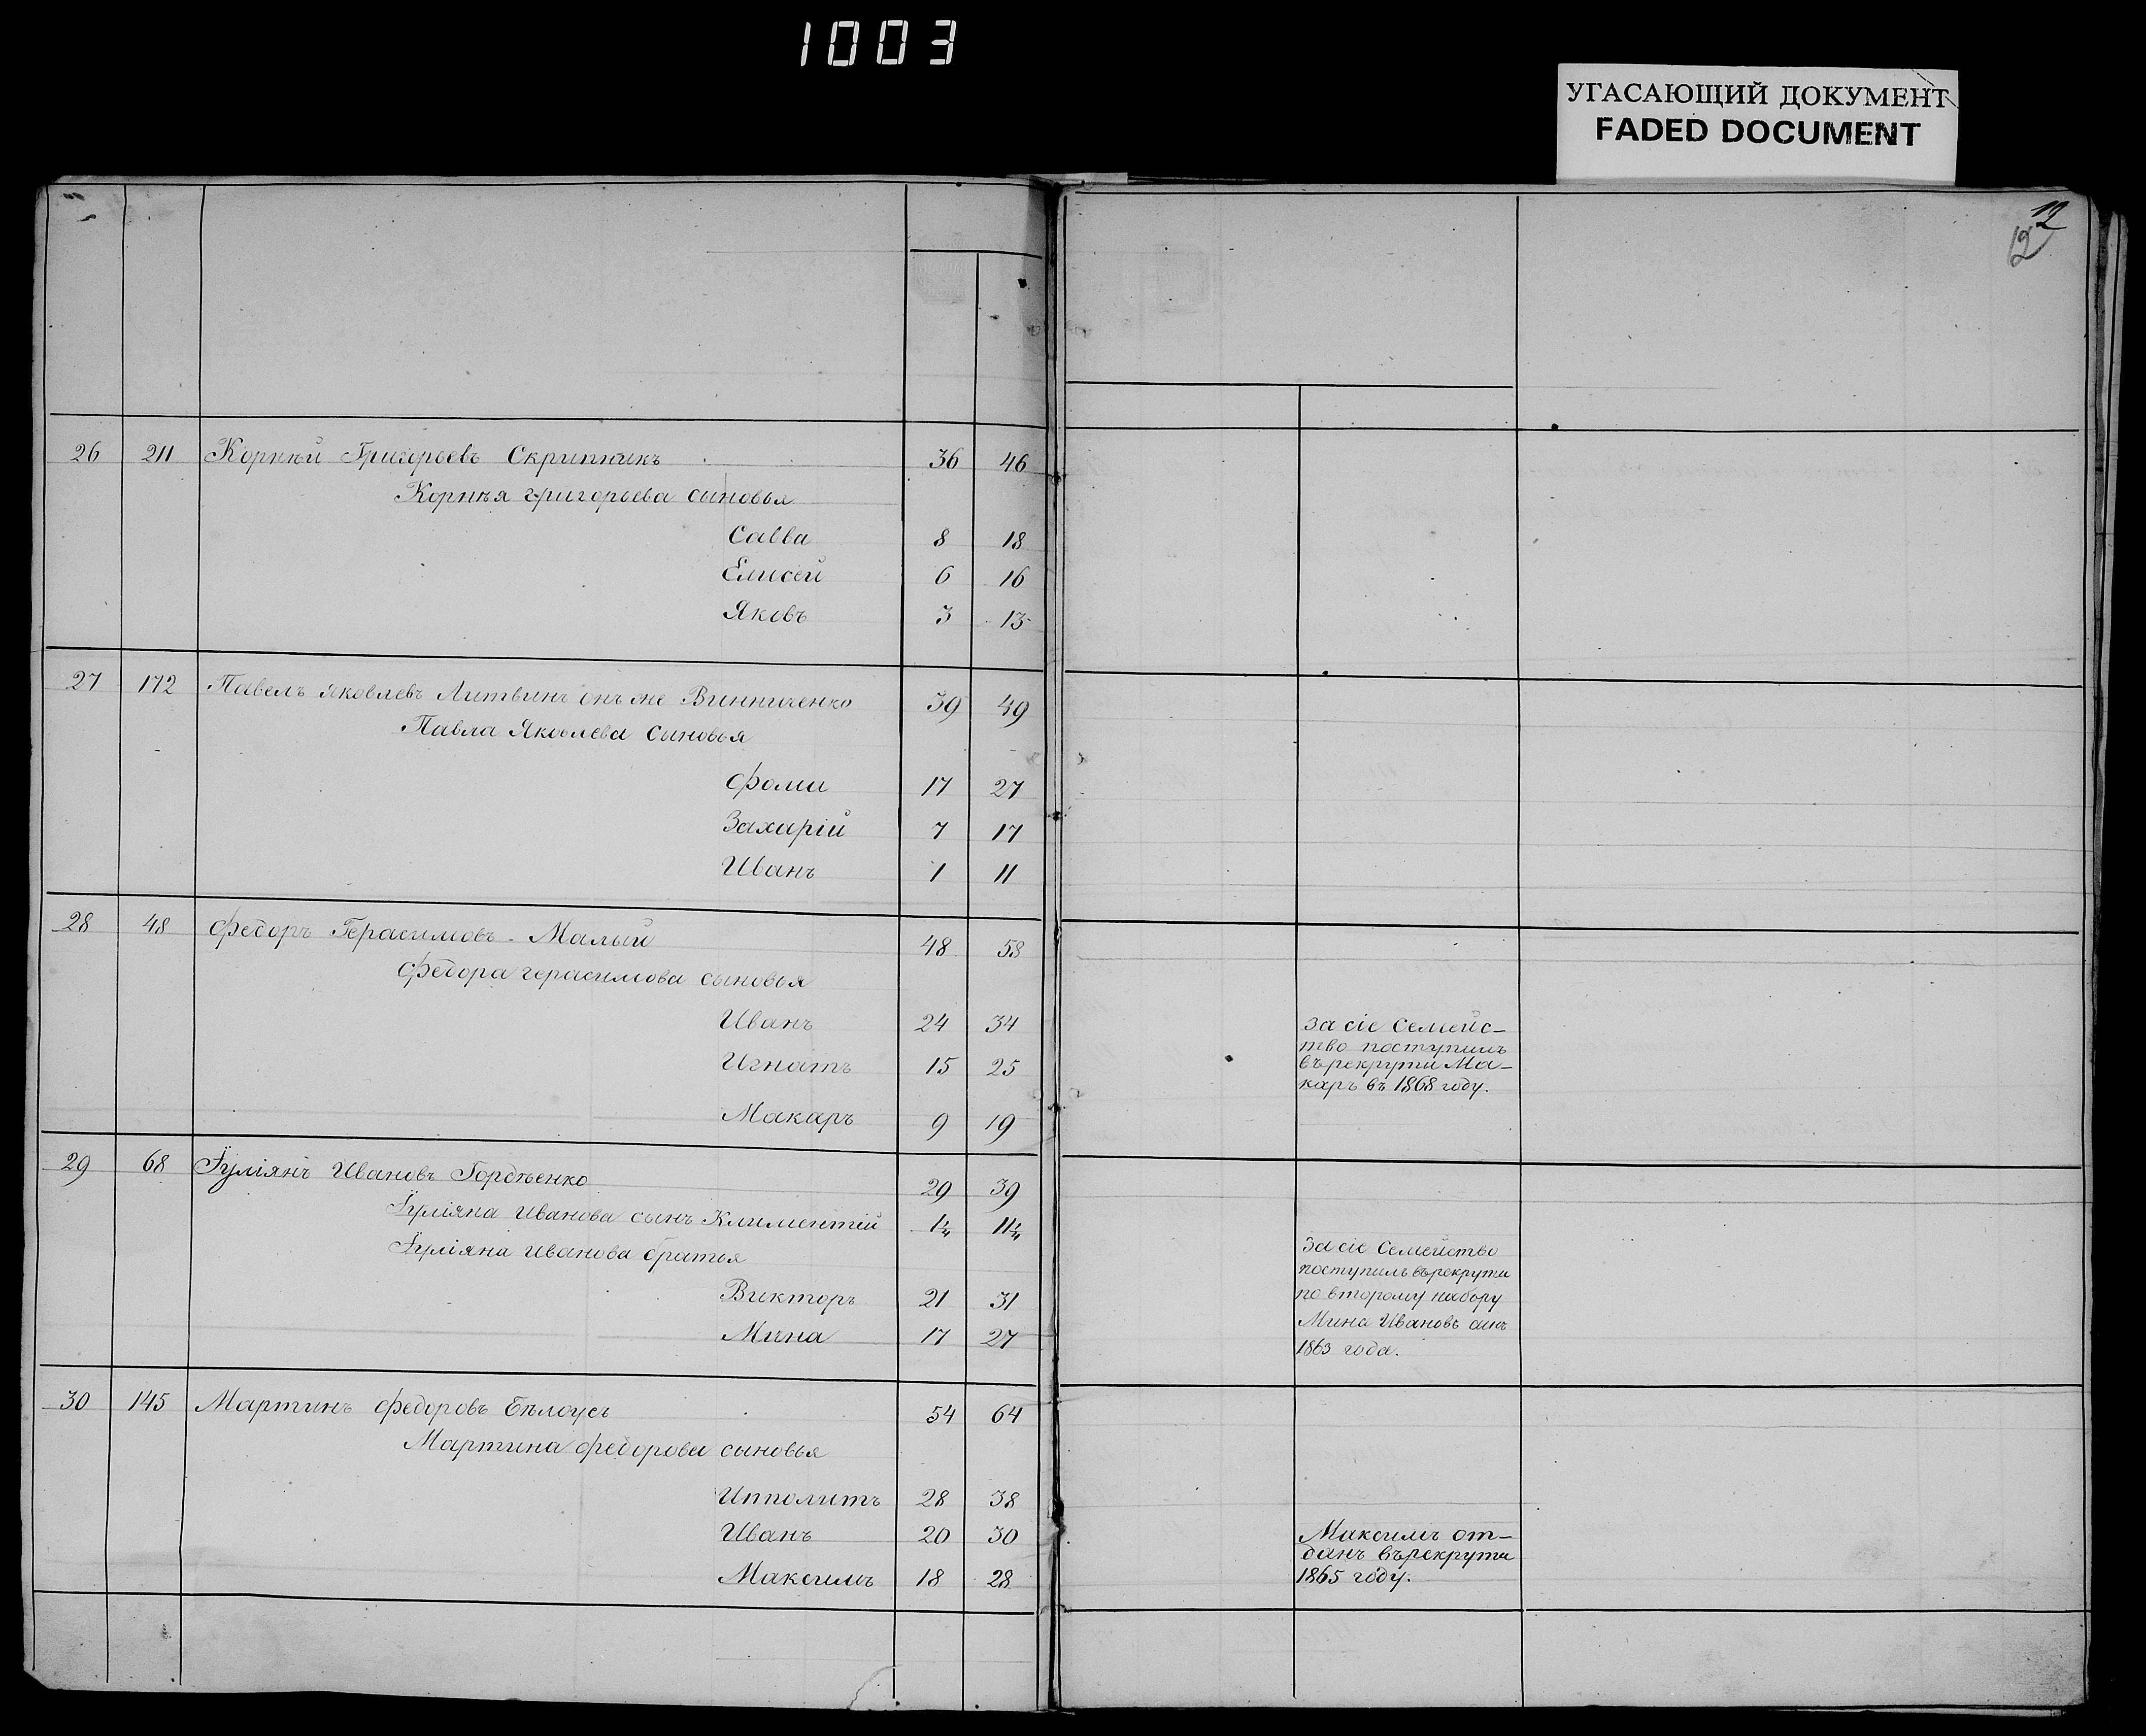 1003
УГАСАЮЩИЙ ДОКУМЕНТ
FADED DOCUMENT
12
12
26 211 Корнѣй Григорьевъ Скрипникъ 36 46
Корнѣя григорьева сыновья
Савва 8 18
Елисей 6 16
Яковъ 3 13
27 172 Павелъ Яковлевъ Литвинъ онъ же Винниченко 39 49
Павла Яковлева сыновья
Фома 17 27
Захарій 7 17
Иванъ 1 11
28 48 Федоръ Герасимовъ Малый 48 58
Федора герасимова сыновья
Иванъ 24 34
Игнатъ 15 25
Макаръ 9 19
За сіе Семейс-
тво поступилъ
въ рекруты Ма-
каръ въ 1868 году.
29 68 Іуліянъ Ивановъ Гордѣенко 29 39
Іуліяна Иванова сынъ Климентій 1/4 11/4
Іуліяна Иванова братья
Викторъ 21 31
Мина 17 27
За сіе Семейство
поступилъ въ рекруты
по второму набору
Мина Ивановъ
1863 года.
30 145 Мартинъ Федоровъ Бѣлоусъ 54 64
Мартина федорова сыновья
Ипполитъ 28 38
Иванъ 20 30
Максимъ 18 28
Максимъ от-
данъ въ рекруты
1865 году.